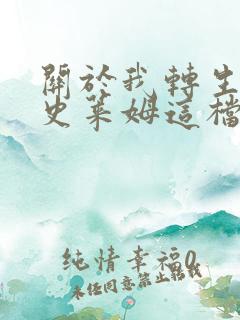 關於我轉生
史萊姆這檔
純情幸福0
未经同意禁止轉載